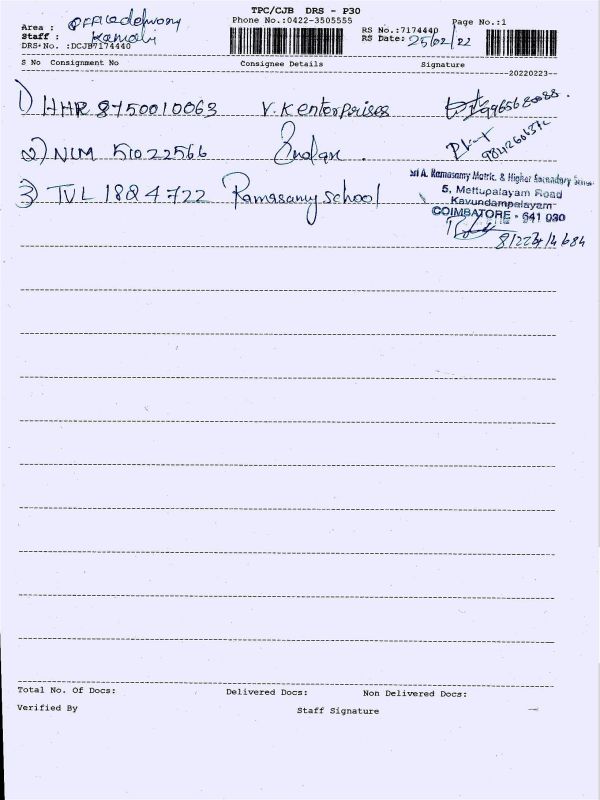 TPC/CJB DRS - P30
Phone No.:0422-3505555
Page No.:1
Area :
Staff :
DRS No. :DCJB7174440
RS No.:7174440
RS Date: 25/02/22
S No Consignment No Consignee Details Signature
20220223
1) HHR 8750010063 V.K enterprises 9965680088.
2) NLM 51022566 9842606372
3) TVL 1824722 Ramasamy school
Sri A. Ramasamy Matric. & Higher Secondary
5, Mettupalayam Road
Kavundampalayam
COIMBATORE - 641 030
Total No. Of Docs: Delivered Docs: Non Delivered Docs:
Verified By Staff Signature